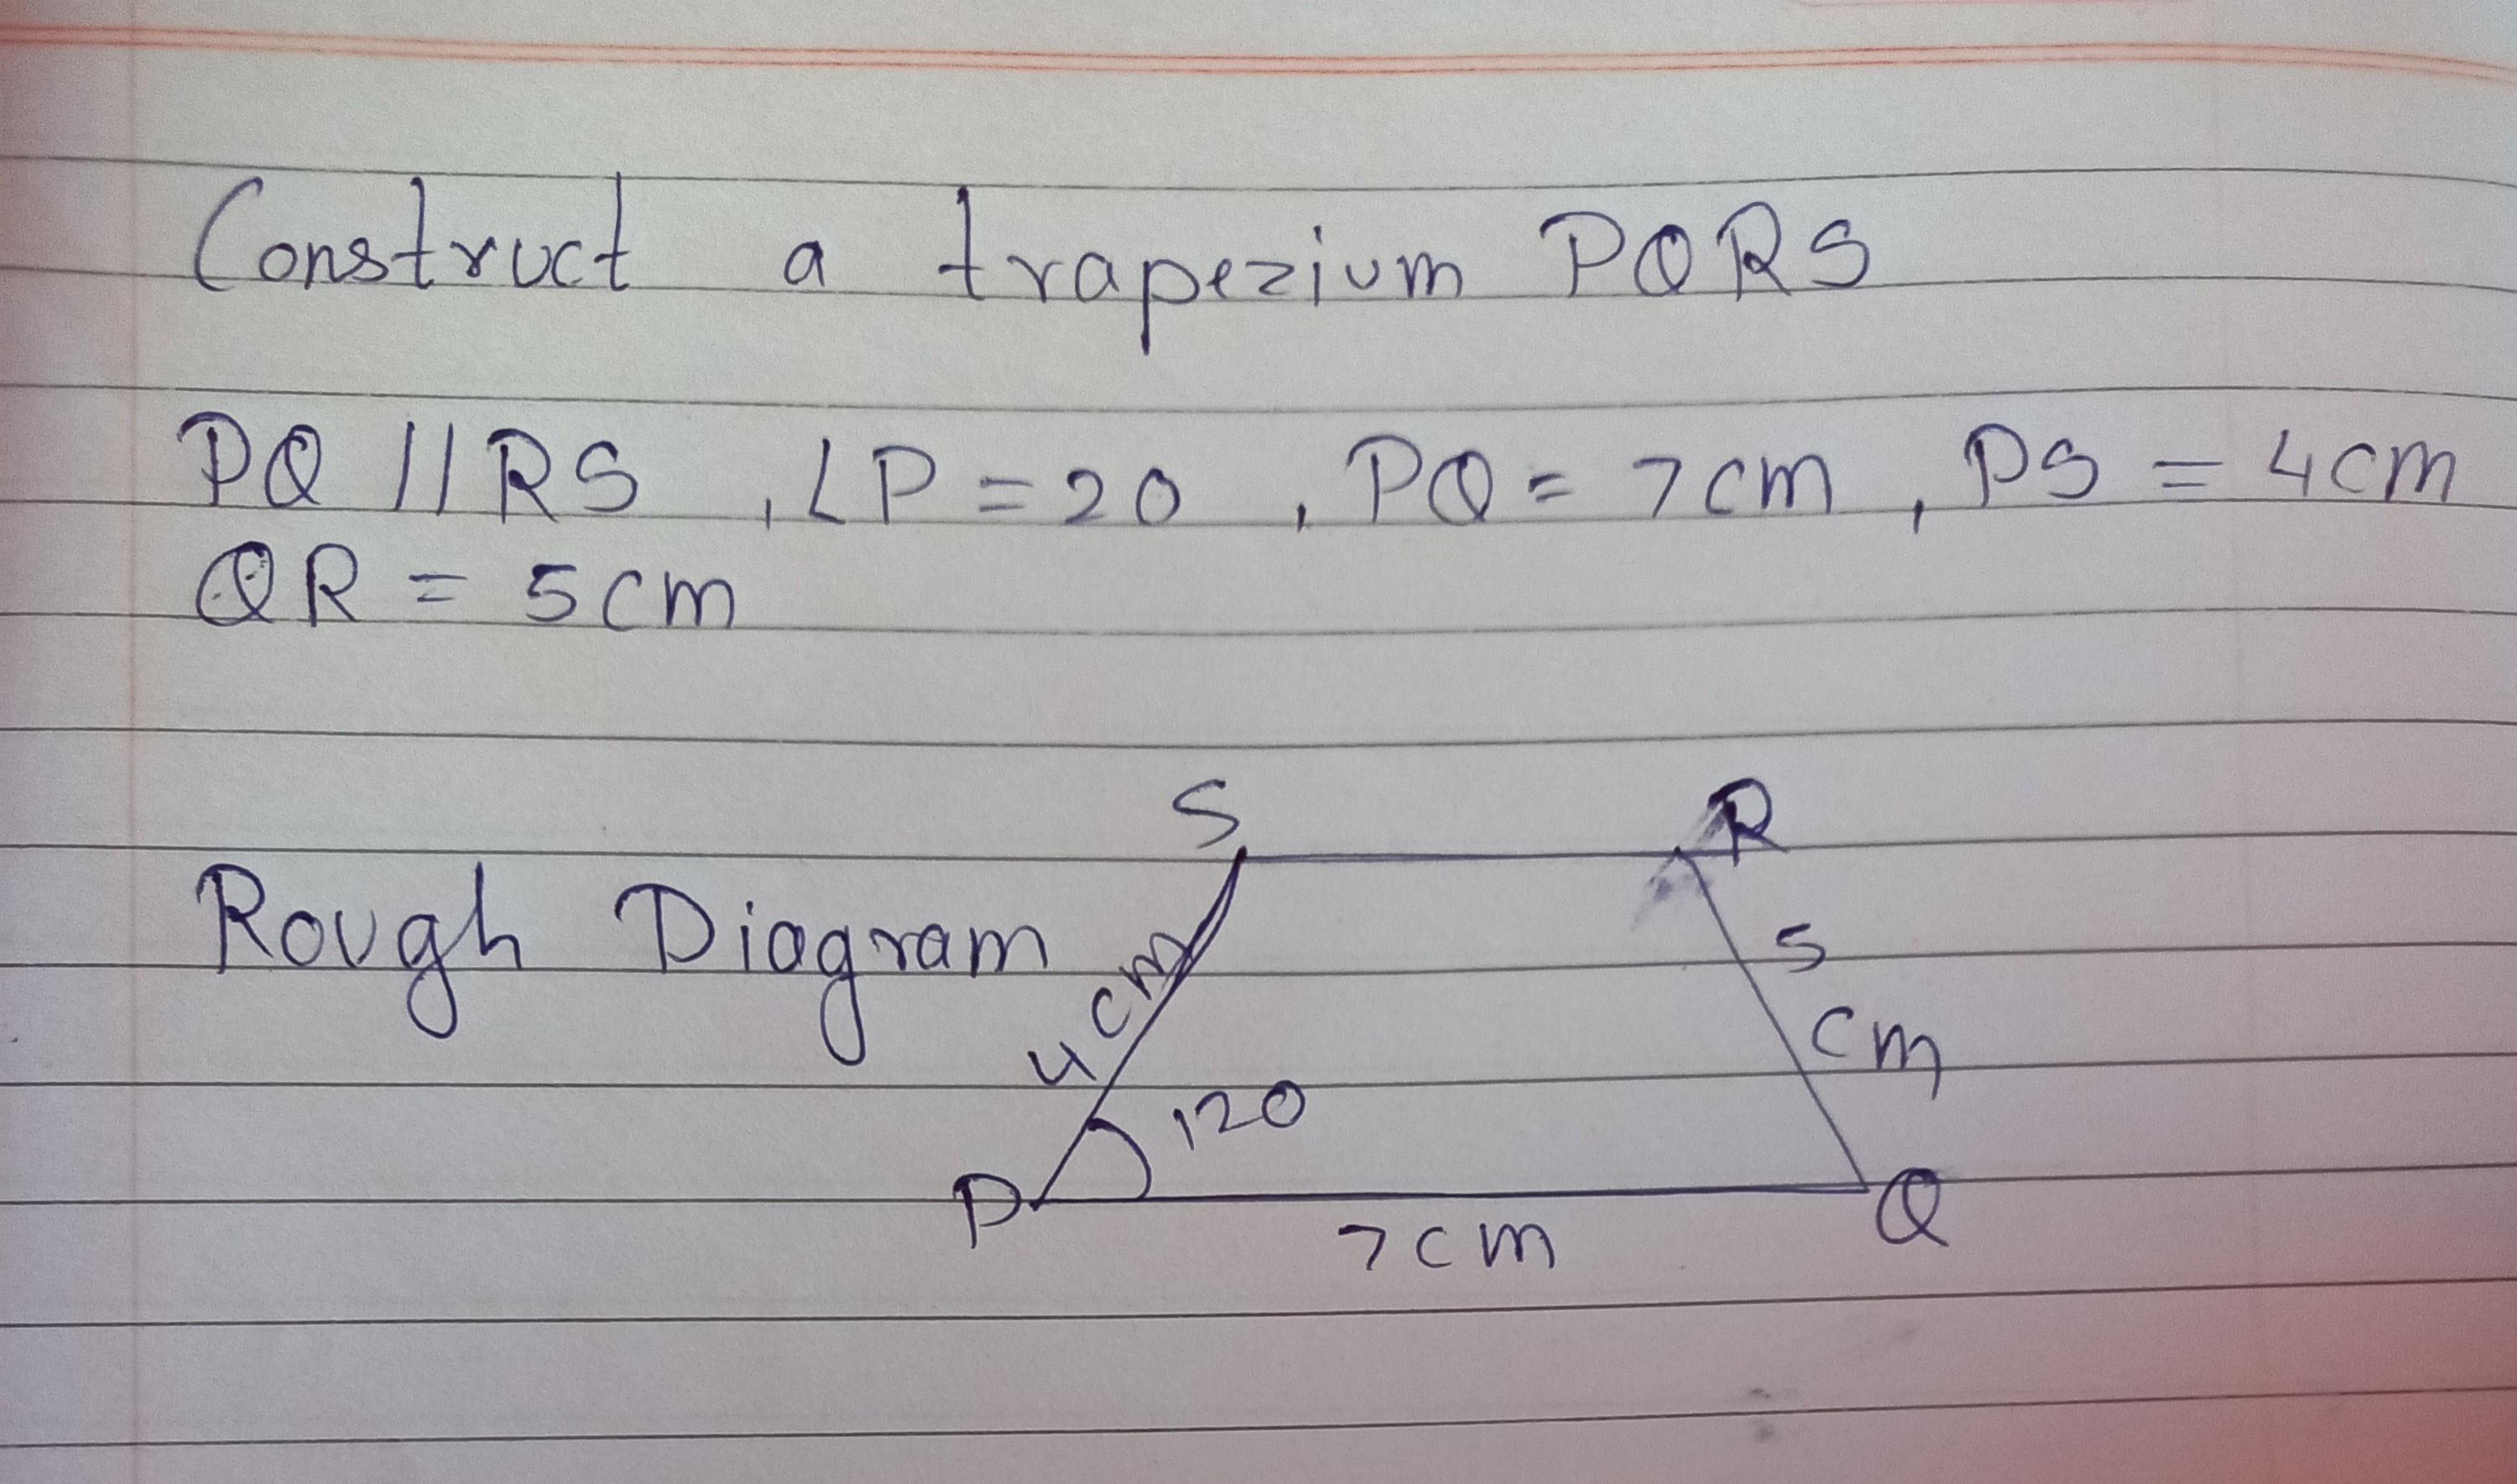 Construct a trapezium PQRS
PQ || RS , ∠P = 20 , PQ = 7cm , PS = 4cm
QR = 5cm
S R
Rough Diagram
4cm
5
cm
120
P Q
7cm